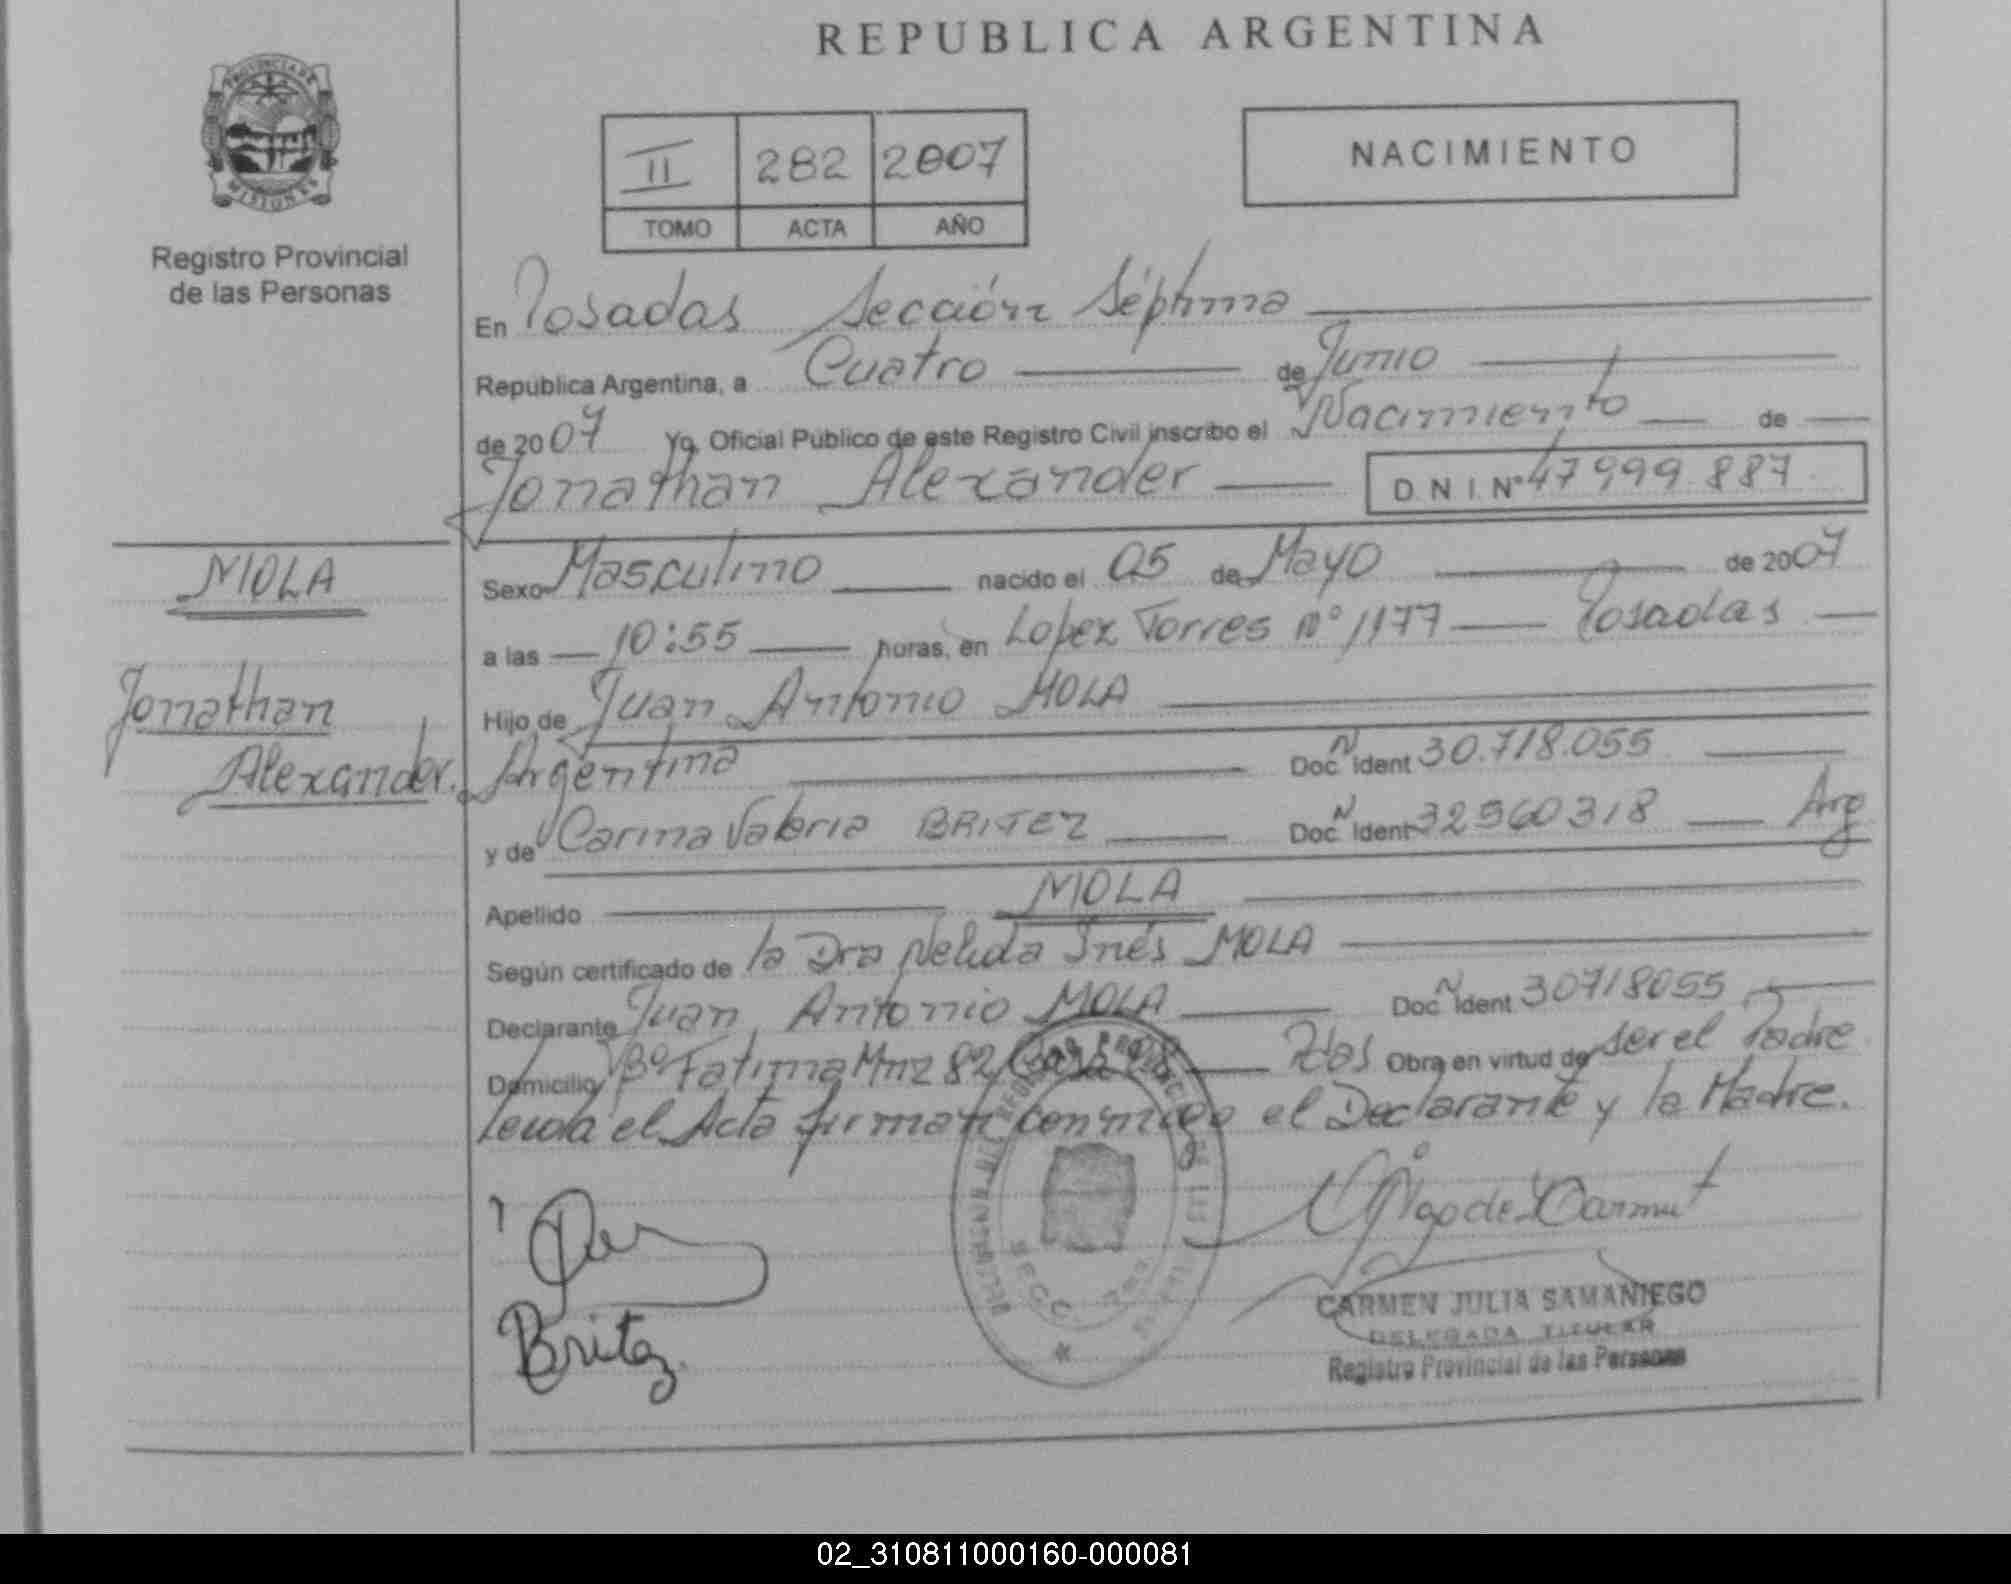 REPUBLICA ARGENTINA
PROVINCIA DE
MISIONES
Registro Provincial
de las Personas
II 282 2007
TOMO ACTA AÑO
NACIMIENTO
En Posadas Sección Séptima
República Argentina, a Cuatro de Junio
de 2007 Yo, Oficial Público de este Registro Civil inscribo el Nacimiento de
Jonathan Alexander D.N.I. Nº 47 999 887
MOLA
Jonathan
Alexander.
Sexo Masculino nacido el 05 de Mayo de 2007
a las 10:55 horas, en Lopez Torres Nº 1177 Posadas
Hijo de Juan Antonio MOLA
Argentina Doc N Ident 30.718.055
y de Carina Valeria BRITEZ Doc N Ident 32960318 Arg
Apellido MOLA
Según certificado de la Dra Nelida Inés MOLA
Declarante Juan Antonio MOLA Doc N Ident 30718055
Domicilio Bº Fatima Mnz 82 Casa Pdas Obra en virtud de ser el Padre
Leida el Acta firman conmigo el Declarante y la Madre.
Britez
CARMEN JULIA SAMANIEGO
DELEGADA TITULAR
Registro Provincial de las Personas
02_310811000160-000081